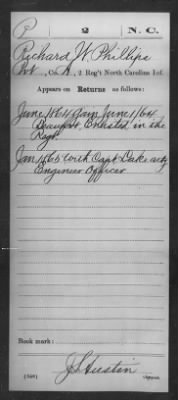 P 2 N.C.
Richard W. Phillips
Pvt., Co. A, 2 Reg't North Carolina Inf.
Appears on Returns as follows:
June 1864 June 1/64
Beaufort, Enlisted in the
Regt.
Jan 1865 with Capt actg
Engineer Officer
Book mark:
(546) J S Austin
Copyist.